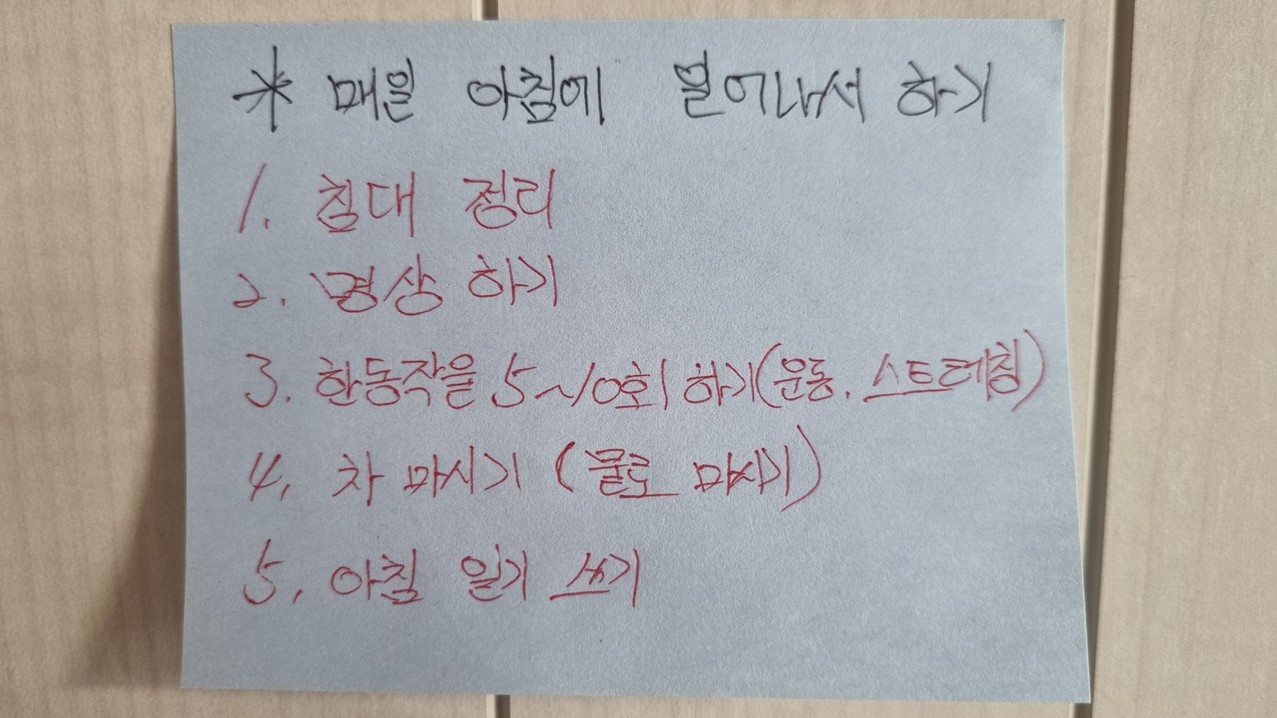 * 매일 아침에 일어나서 하기
1. 침대 정리
2. 명상 하기
3. 한동작을 5~10회 하기(운동. 스트레칭)
4. 차 마시기 (물로 마시기)
5. 아침 일기 쓰기